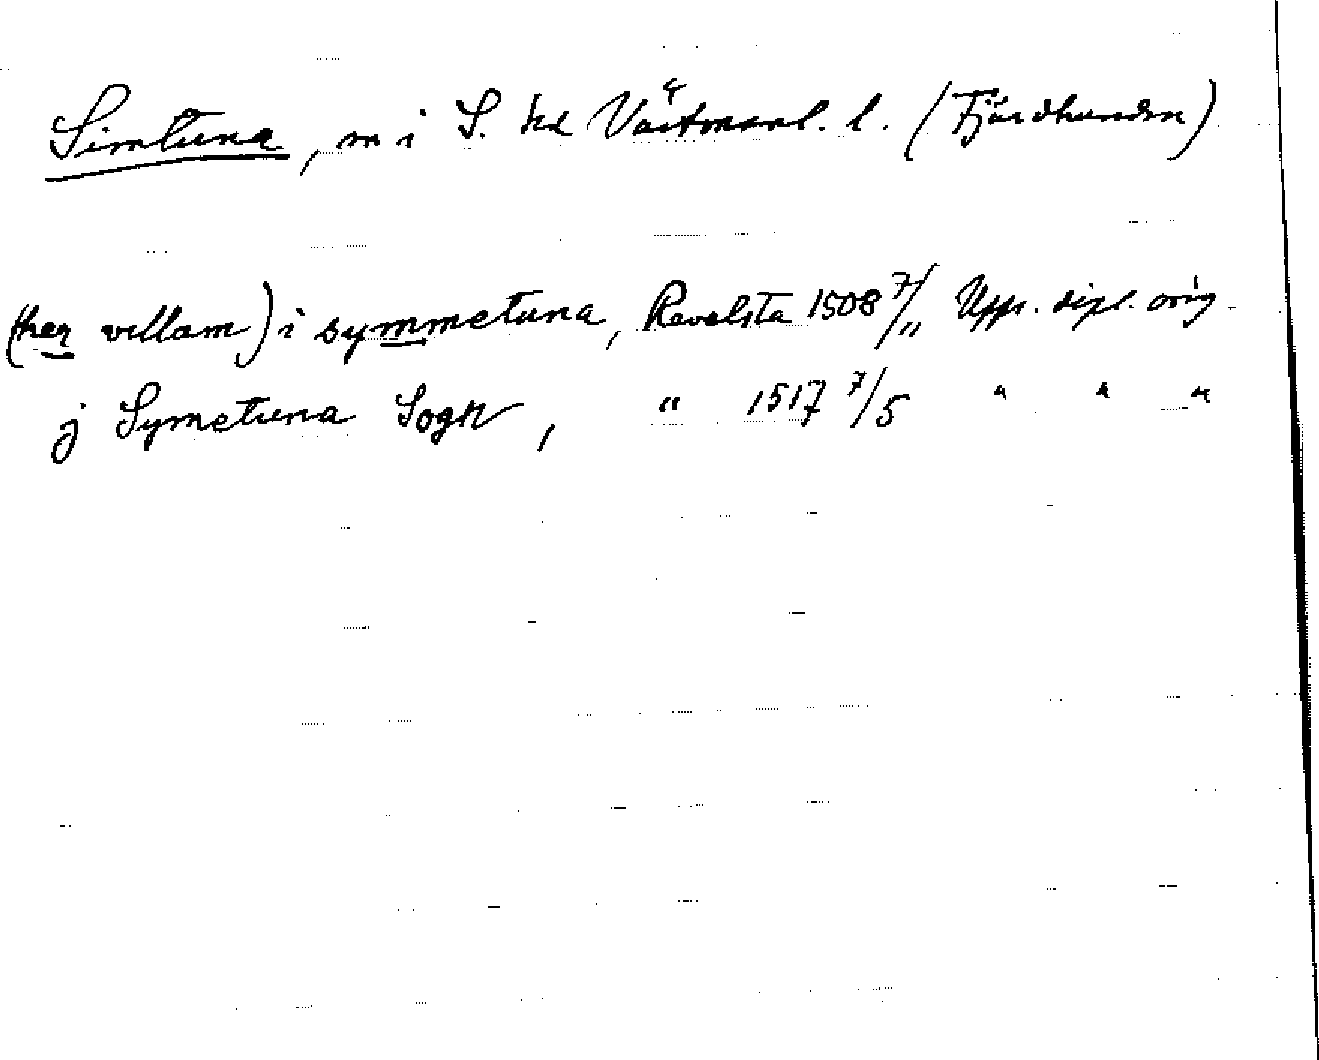 Simtuna, sn i S. hd Västmanl. l. (Fjärdhundra)
(her villam) i symmetuna, Ravalsta 1508 7/11 Upps. dipl. orig.
j Symetuna Sogn, " 1517 7/5 " " "